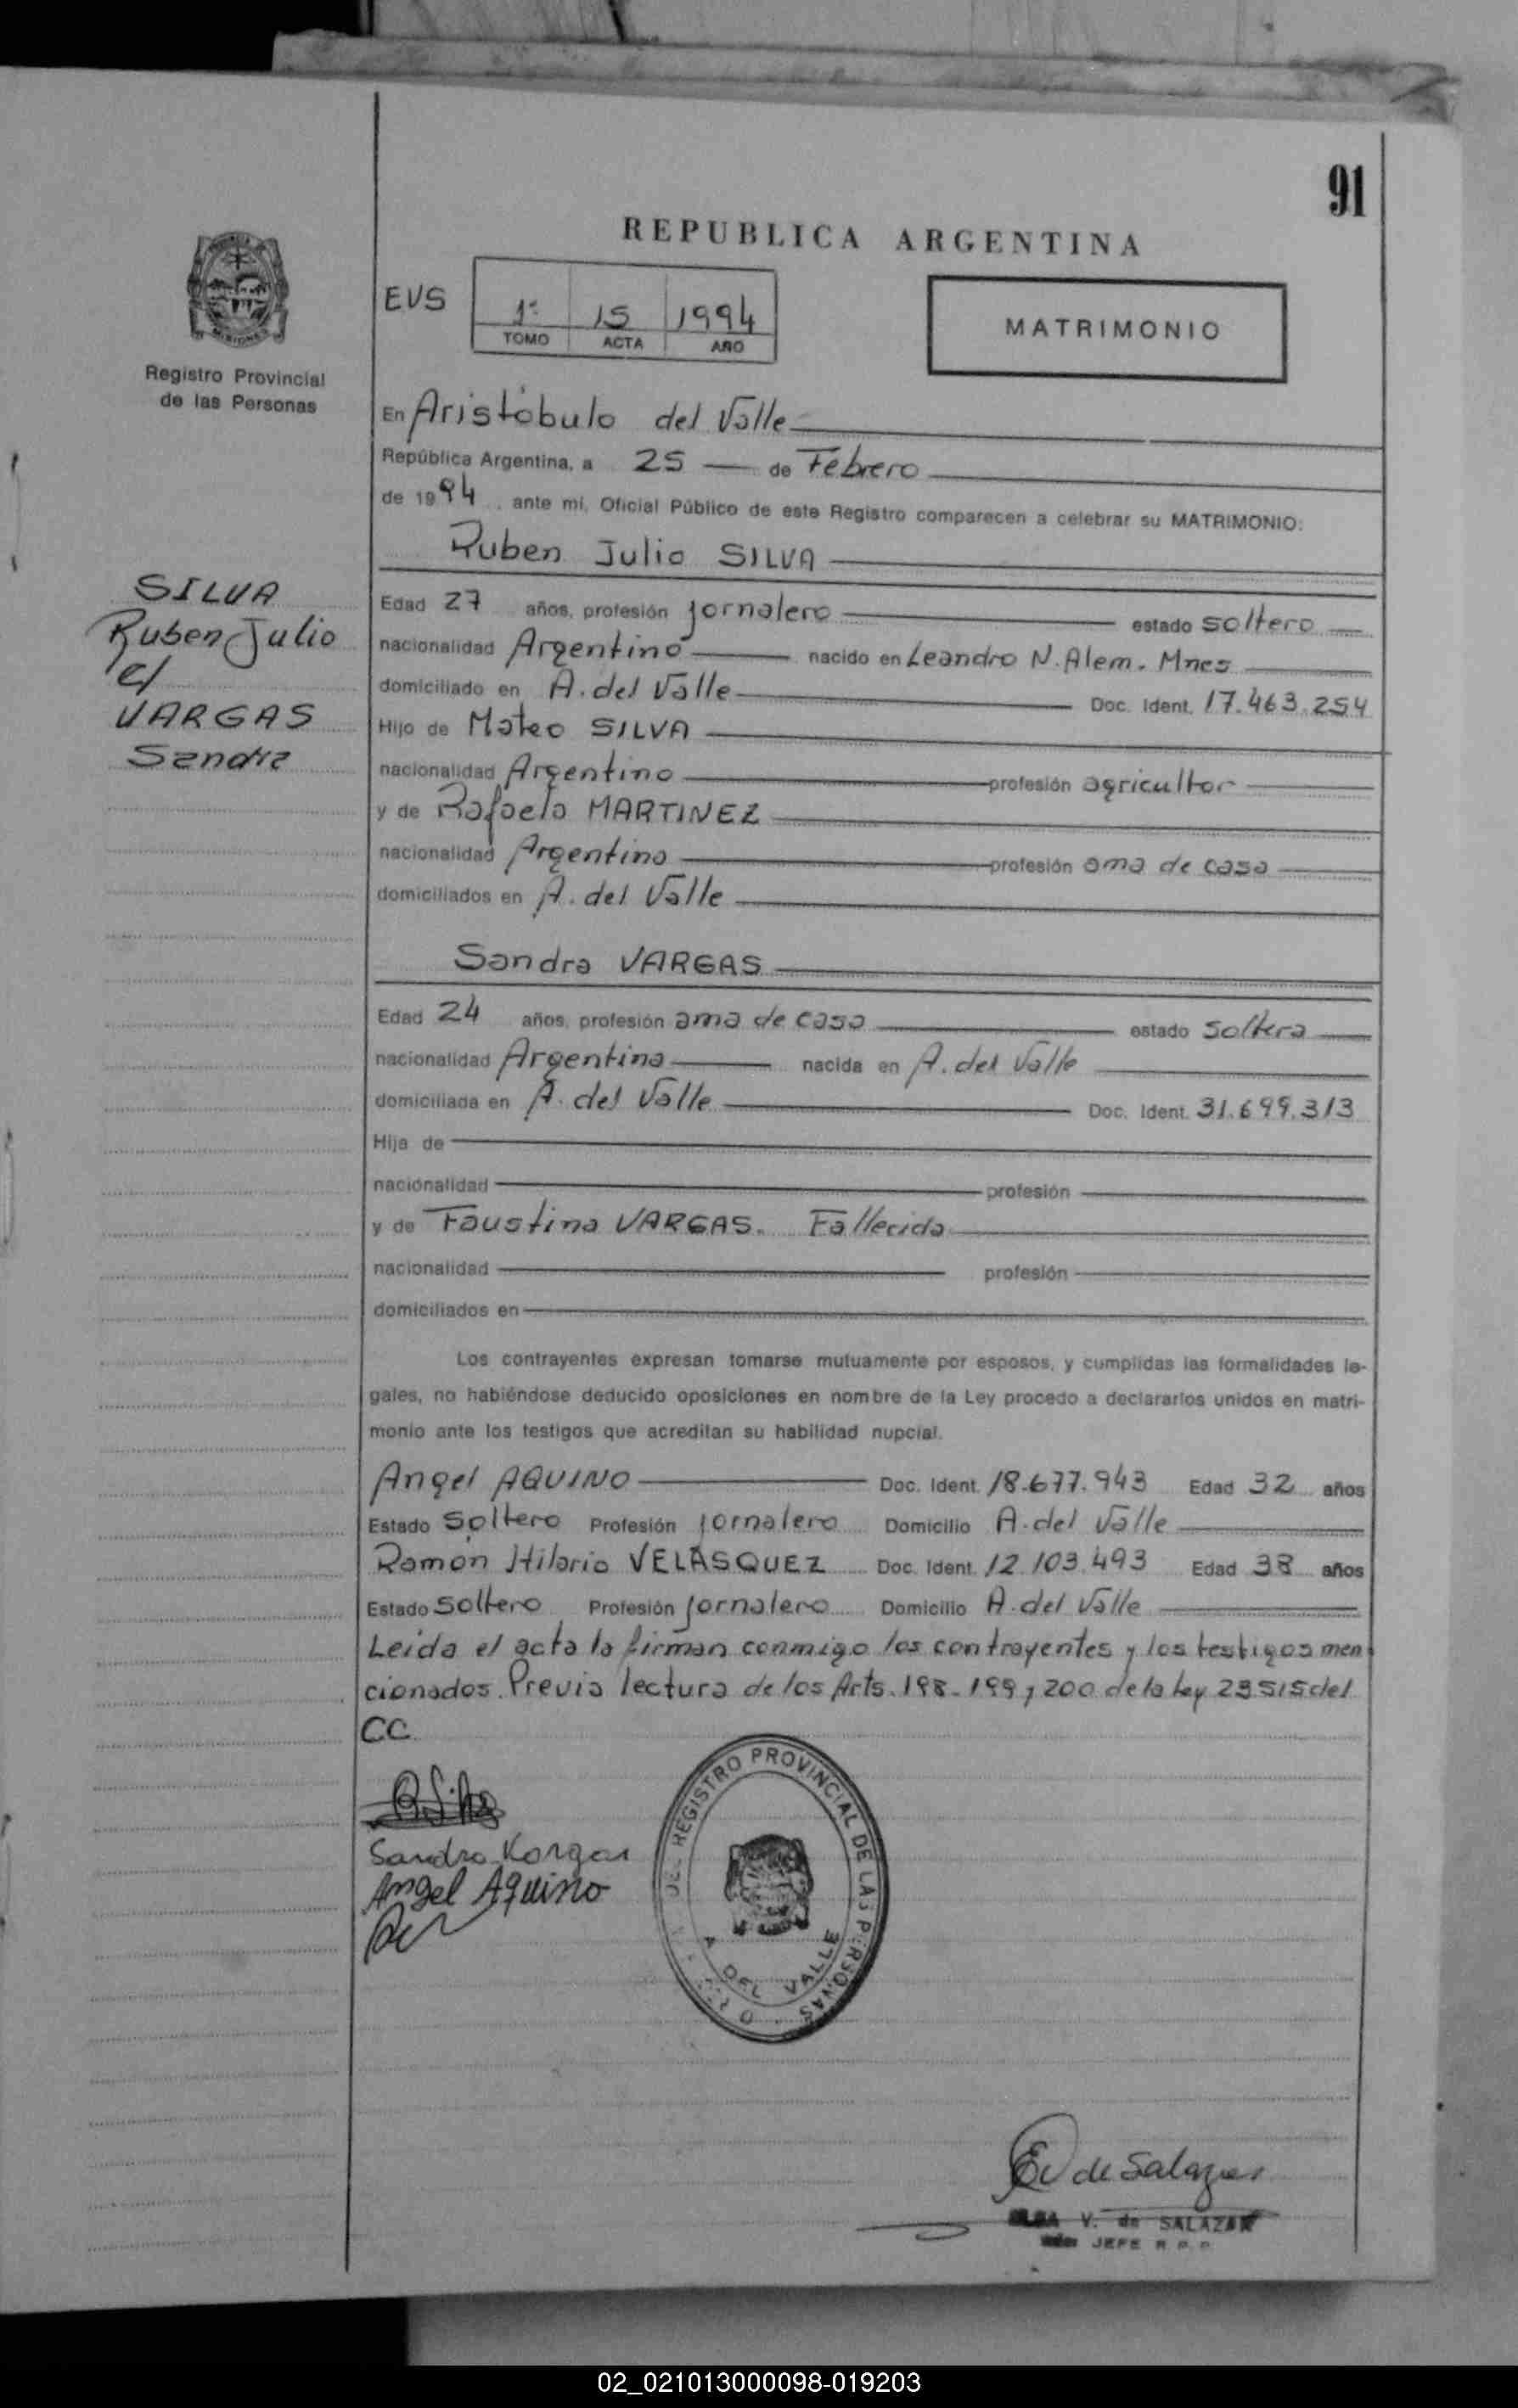 91
REPUBLICA ARGENTINA
EVS
1º 15 1994
TOMO ACTA AÑO
MATRIMONIO
MISIONES
Registro Provincial
de las Personas
En Aristóbulo del Valle
República Argentina, a 25 de Febrero
de 1994, ante mí, Oficial Público de este Registro comparecen a celebrar su MATRIMONIO:
Ruben Julio SILVA
SILVA
Ruben Julio
c/
VARGAS
Sandra
Edad 27 años, profesión jornalero estado soltero
nacionalidad Argentino nacido en Leandro N. Alem. Mnes
domiciliado en A. del Valle Doc. Ident. 17.463.254
Hijo de Mateo SILVA
nacionalidad Argentino profesión agricultor
y de Rafaela MARTINEZ
nacionalidad Argentina profesión ama de casa
domiciliados en A. del Valle
Sandra VARGAS
Edad 24 años, profesión ama de casa estado soltera
nacionalidad Argentina nacida en A. del Valle
domiciliada en A. del Valle Doc. Ident. 31.699.313
Hija de
nacionalidad profesión
y de Faustina VARGAS. Fallecida
nacionalidad profesión
domiciliados en
Los contrayentes expresan tomarse mutuamente por esposos, y cumplidas las formalidades le-
gales, no habiéndose deducido oposiciones en nombre de la Ley procedo a declararlos unidos en matri-
monio ante los testigos que acreditan su habilidad nupcial.
Angel AQUINO Doc. Ident. 18.677.943 Edad 32 años
Estado Soltero Profesión jornalero Domicilio A. del Valle
Ramón Hilario VELASQUEZ Doc. Ident. 12.103.493 Edad 38 años
Estado soltero Profesión jornalero Domicilio A. del Valle
Leída el acta la firman conmigo los contrayentes y los testigos men
cionados. Previa lectura de los Arts. 198-199 y 200 de la Ley 23515 del
CC
R Silva
Sandra Vargas
Angel Aquino
REGISTRO PROVINCIAL DE LAS PERSONAS
A DEL VALLE
EV de Salazar
V. de SALAZAR
JEFE R. P. P.
02_021013000098-019203